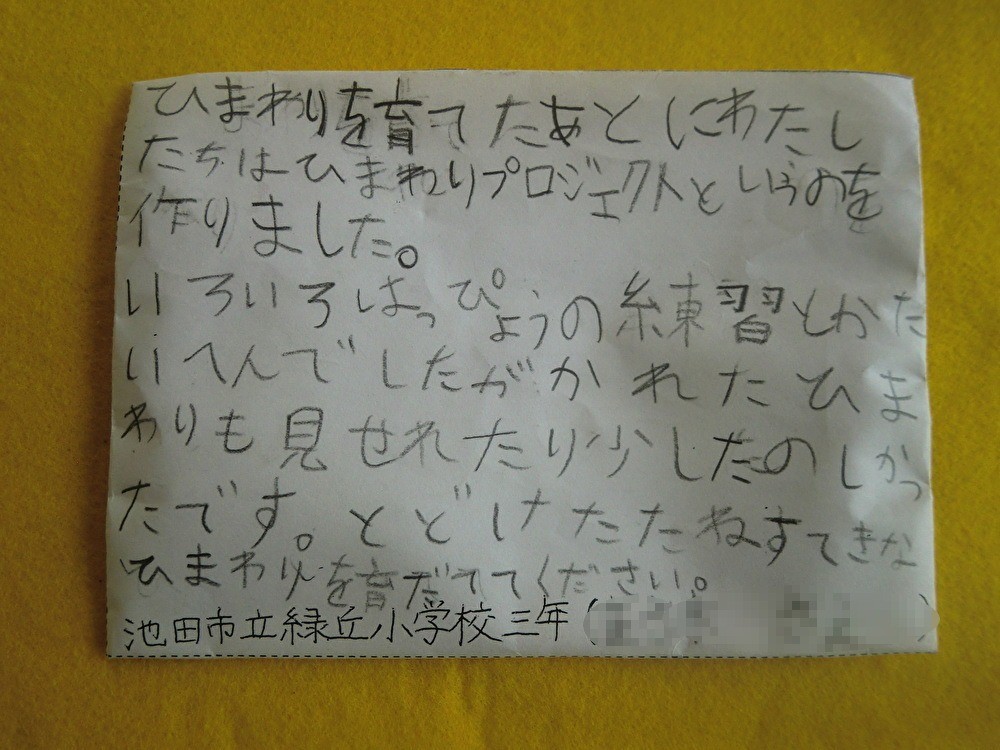 ひまわりを育てたあとにわたし
たちはひまわりプロジェクトというのを
作りました。
いろいろはっぴょうの練習とかた
いへんでしたがかれたひま
わりも見せれたり少したのしかっ
たです。とどけたたねすてきな
ひまわりを育だててください。
池田市立緑丘小学校三年(